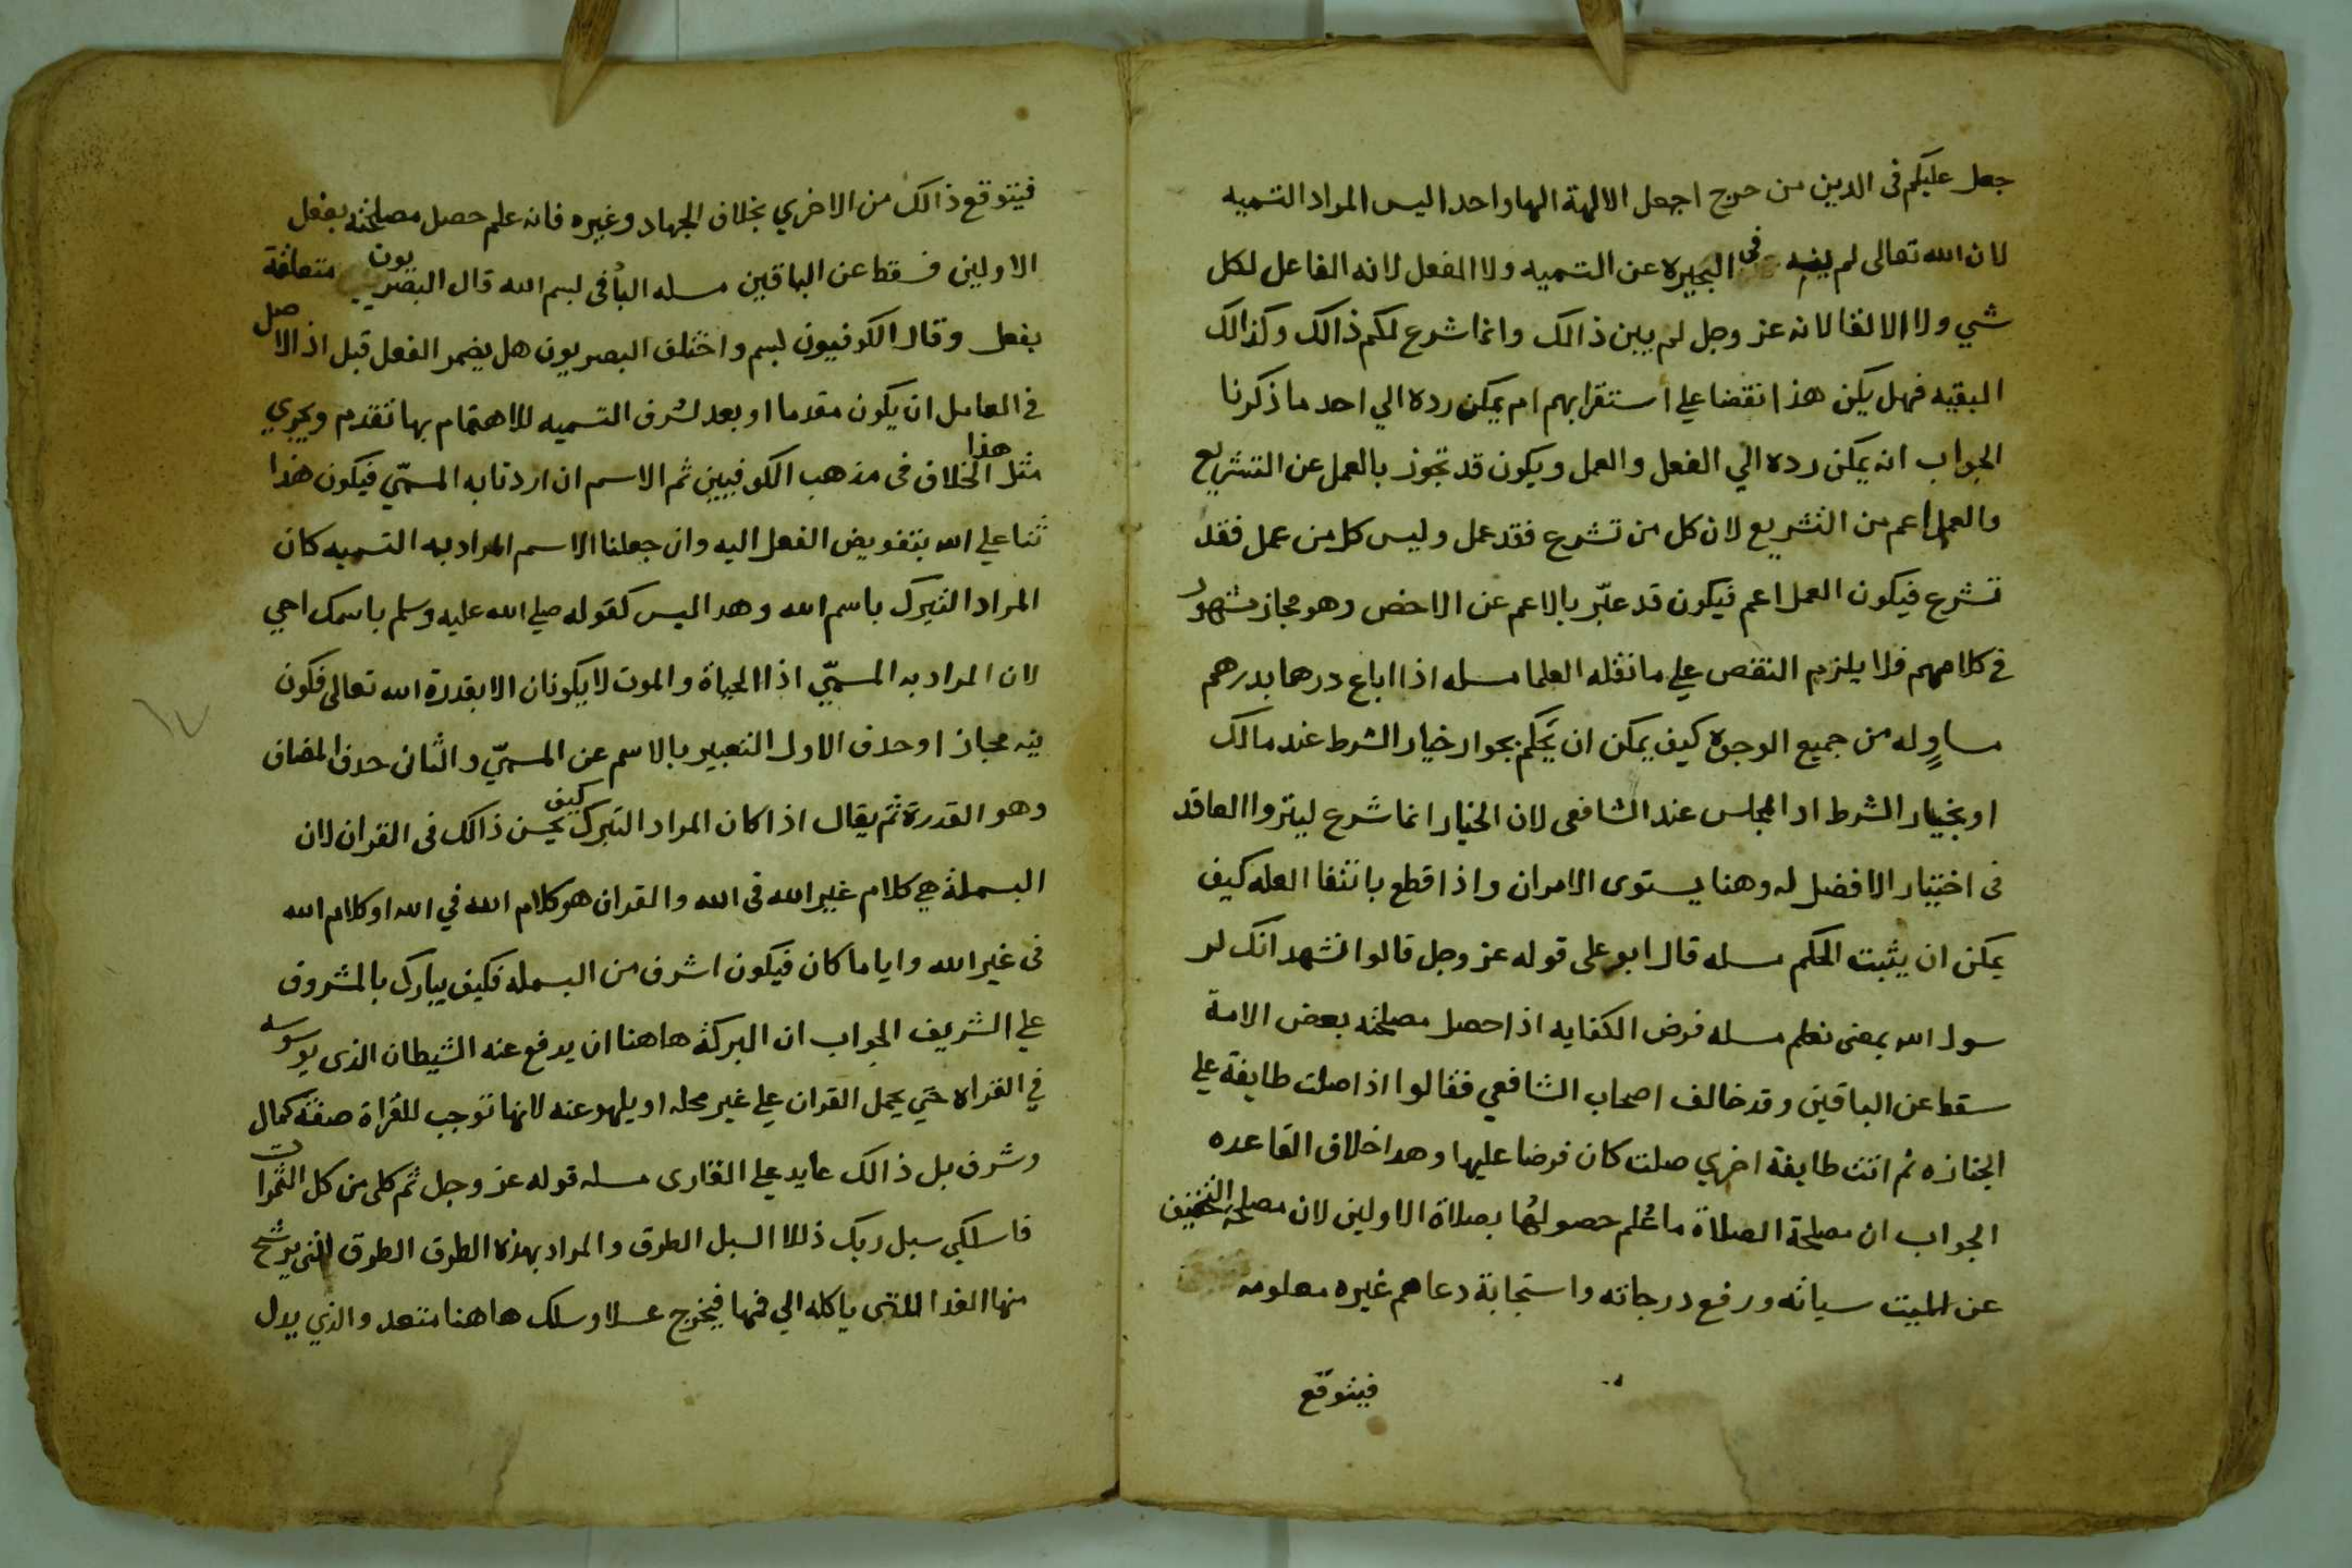 جعل عليكم فى الدين من حرج اجعل الالهة الها واحدا ليس المراد التسميه
لان الله تعالى لم ينه فى البحيره عن التسميه ولا الفعل لانه الفاعل لكل
شي ولا الالقا لانه عز وجل لم يبين ذالك وانما شرع لكم ذالك وكذالك
البقيه فهل يكن هذا نقضا علي استقرايهم ام يمكن رده الي احد ما ذكرنا
الجواب انه يمكن رده الي الفعل والعمل ويكون قد تجوز بالعمل عن التشريع
والعمل اعم من التشريع لان كل من تشرع فقد عمل وليس كل من عمل فقد
تشرع فيكون العمل اعم فيكون قد عبّر بالاعم عن الاخص وهو مجاز مشهور
في كلامهم فلا يلزم النقص علي ما نقله العلما مسله اذا اباع درهما بدرهم
مساوٍ له من جميع الوجوه كيف يمكن ان يحكم بجواز خيار الشرط عند مالك
او بخيار الشرط او المجلس عند الشافعى لان الخيار انما شرع ليتروا العاقد
فى اختيار الافضل له وهنا يستوى الامران واذا قطع بانتفا العله كيف
يمكن ان يثبت الحكم مسله قال ابو على قوله عز وجل قالوا نشهد انك لر
سول الله بمعنى نعلم مسله فرض الكفايه اذا حصل مصلحته بعض الامة
سقط عن الباقين وقد خالف اصحاب الشافعي فقالوا اذا صلت طايفة علي
الجنازه ثم اتت طايفة اخري صلت كان فرضا عليها وهدا خلاف القاعده
الجواب ان مصلحة الصلاة ما عُلم حصولها بصلاة الاولين لان مصلحة التخفيف
عن الميت سياته ورفع درجاته واستجابة دعاهم غيره معلومه
فيتوقع
فيتوقع ذالك من الاخري بخلاف الجهاد وغيره فانه علم حصل مصلحته بفعل
الاولين فسقط عن الباقين مسله البا فى لبسم الله قال البصريون متعلقة
بفعل وقال الكوفيون لبسم واختلف البصريون هل يضمر الفعل قبل اذ الاصل
في العامل ان يكون مقدما او بعد لشرف التسميه للاهتمام بها تقديم ويجري
مثل هذا الخلاف فى مذهب الكوفيين ثم الاسم ان اردنا به المسمّي فيكون هذا
ثنا علي الله بتفويض الفعل اليه وان جعلنا الاسم المراد به التسميه كان
المراد التبرك باسم الله وهدا ليس كقوله صلي الله عليه وسلم باسمك احي
لان المراد به المسمّي اذا الحياة والموت لا يكونان الا بقدرة الله تعالى فكون
فيه مجاز او حدف الاول التعبير بالاسم عن المسمّي والثانى حدف المضاف
وهو القدرة ثم يقال اذا كان المراد التبرك كيف يحسن ذالك فى القران لان
البسملة هي كلام غير الله فى الله والقران هو كلام الله في الله او كلام الله
فى غير الله وايا ما كان فيكون اشرف من البسمله فكيف يبارك بالمشروف
علي الشريف الجواب ان البركة هاهنا ان يدفع عنه الشيطان الذى يوسوسه
في القراه حتي يحمل القران علي غير محله او يلهو عنه لانها توجب للقراة صفة كمال
وشرف بل ذالك عايد علي القارى مسله قوله عز وجل ثم كلى من كل الثمرات
فاسلكي سبل ربك ذللا السبل الطرق والمراد بهذه الطرق الطرق التى يرشح
منها الغدا اللتى ياكله الي فمها فيخرج عسلا وسلك هاهنا متعد والذي يدل